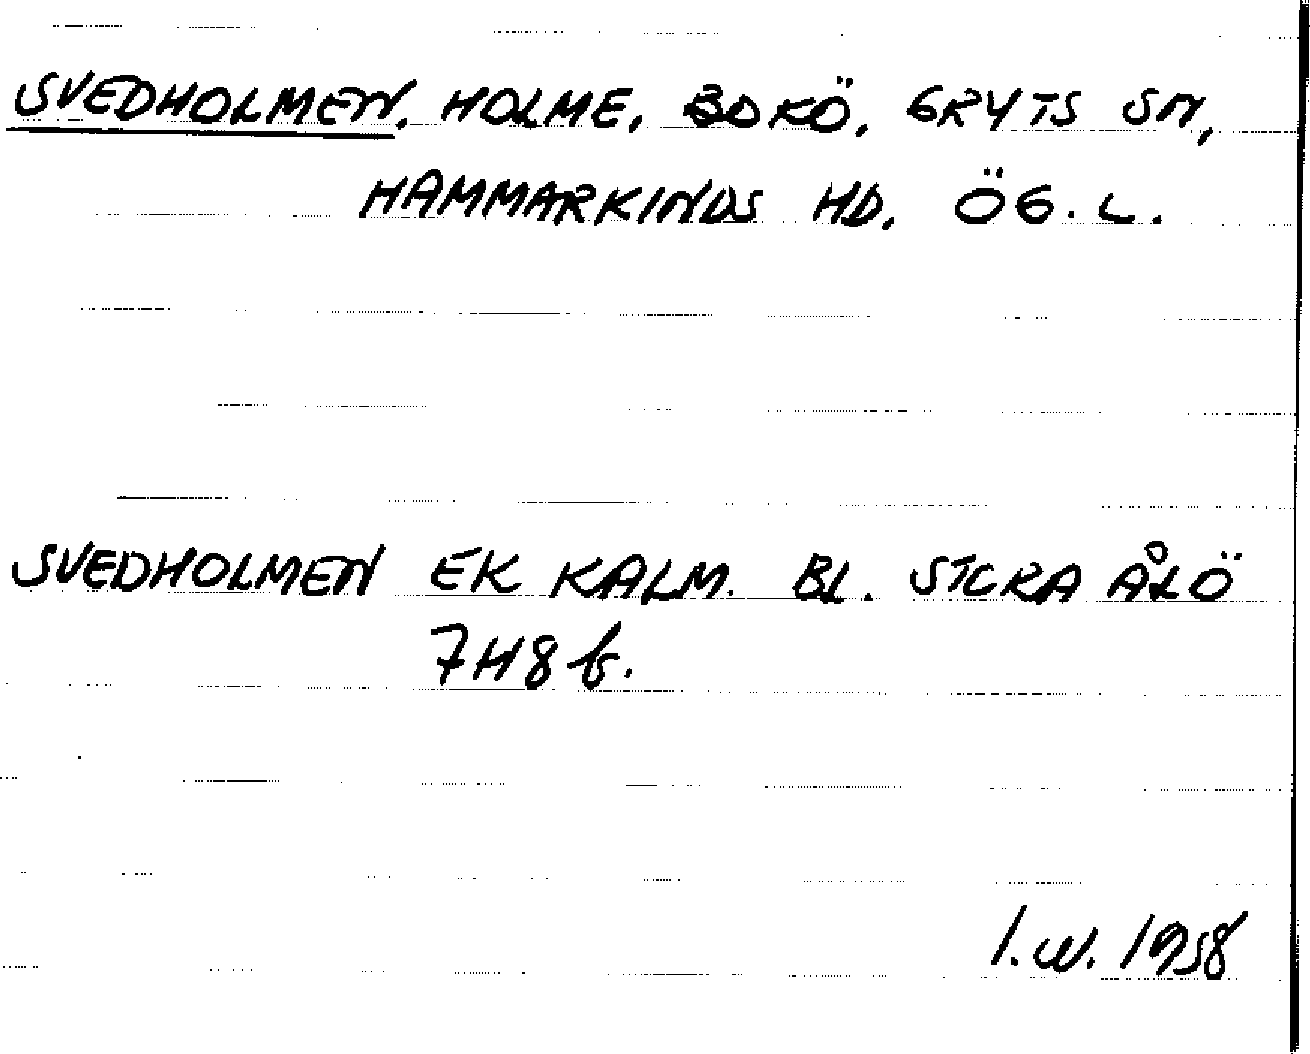 SVEDHOLMEN. HOLME, BOKÖ, GRYTS SN,
HAMMARKINDS HD, ÖG. L.
SVEDHOLMEN EK KALM. BL. STORA ÅLÖ
7H8b.
I.W. 1958